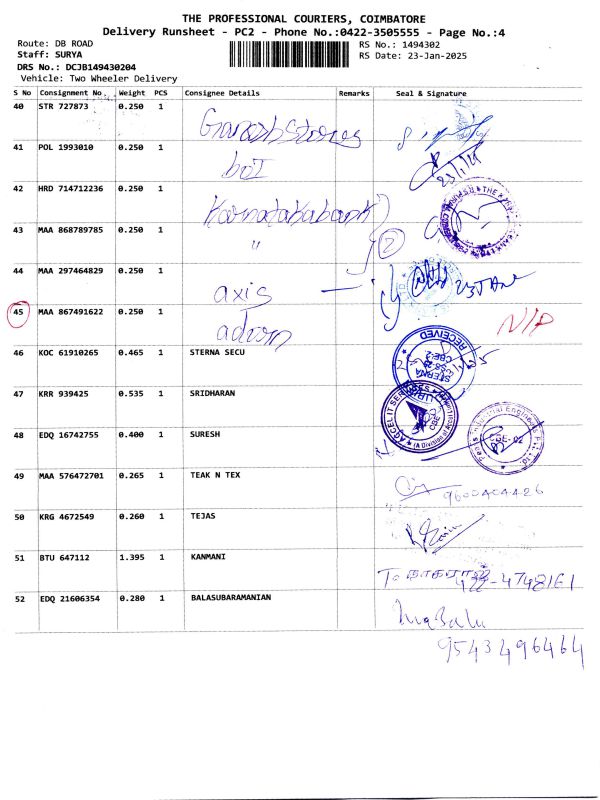 THE PROFESSIONAL COURIERS, COIMBATORE
Delivery Runsheet - PC2 - Phone No.:0422-3505555 - Page No.:4
Route: DB ROAD
RS No.: 1494302
Staff: SURYA
RS Date: 23-Jan-2025
DRS No.: DCJB149430204
Vehicle: Two Wheeler Delivery
S No Consignment No. Weight PCS Consignee Details Remarks Seal & Signature
40 STR 727873 0.250 1 Ganesh Stores
41 POL 1993010 0.250 1 boI 23/1/25
42 HRD 714712236 0.250 1 Karnatakabank
43 MAA 868789785 0.250 1 " 2
44 MAA 297464829 0.250 1 axis 23 JAN
45 MAA 867491622 0.250 1 N/P
46 KOC 61910265 0.465 1 STERNA SECU
STERNA
CBE-2
RECEIVED
47 KRR 939425 0.535 1 SRIDHARAN
48 EDQ 16742755 0.400 1 SURESH
CBE-02
49 MAA 576472701 0.265 1 TEAK N TEX
50 KRG 4672549 0.260 1 TEJAS
51 BTU 647112 1.395 1 KANMANI
52 EDQ 21606354 0.280 1 BALASUBARAMANIAN
9543496464